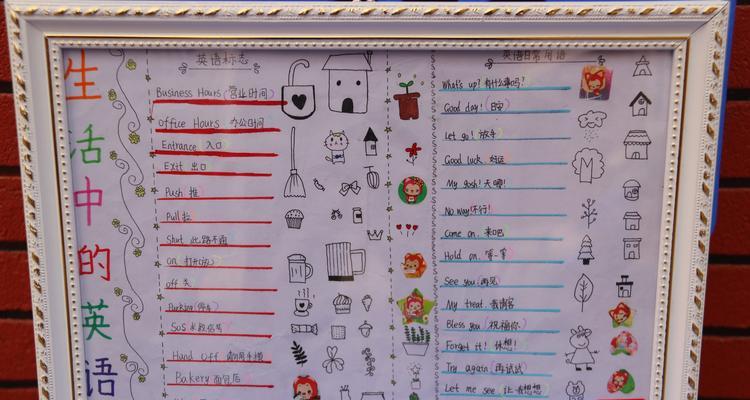 生活中的英语
英语标志
Business Hours (营业时间)
Office Hours 办公时间
Entrance 入口
Exit 出口
Push 推
Pull 拉
Shut 此路不通
on 打开(放)
off 关
Parking (停车)
SOS 求救信号
Hand Off 请勿手摸
Bakery 面包店
英语日常用语
What's up? 有什么事吗?
Good day! (日安)
Let go! 放手
Good luck. 好运
My gosh! 天哪!
No way! 不行!
Come on. 来吧
Hold on. 等一等
See you (再见)
My treat. 我请客
Bless you (祝福你)
Forget it! 休想!
Try again (再试试)
Let me see 让我想想